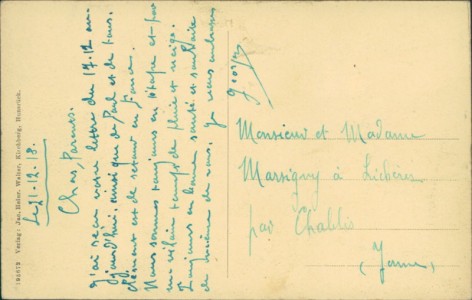 Le 21-12-18.
Chers Parents.
J'ai reçu votre lettre du 17.12 au-
jourd'hui ainsi que de Paul et de tous.
Clément est de retour en France.
Nous sommes toujours en étape et par
un vilain temps de pluie et neige.
Toujours en bonne santé et souhaite
de même de vous. Je vous embrasse
Georges
Monsieur et Madame
Marsigny à
par Chablis
(Yonne)
Verlag: Jac. Heinr. Walter, Kirchberg, Hunsrück.